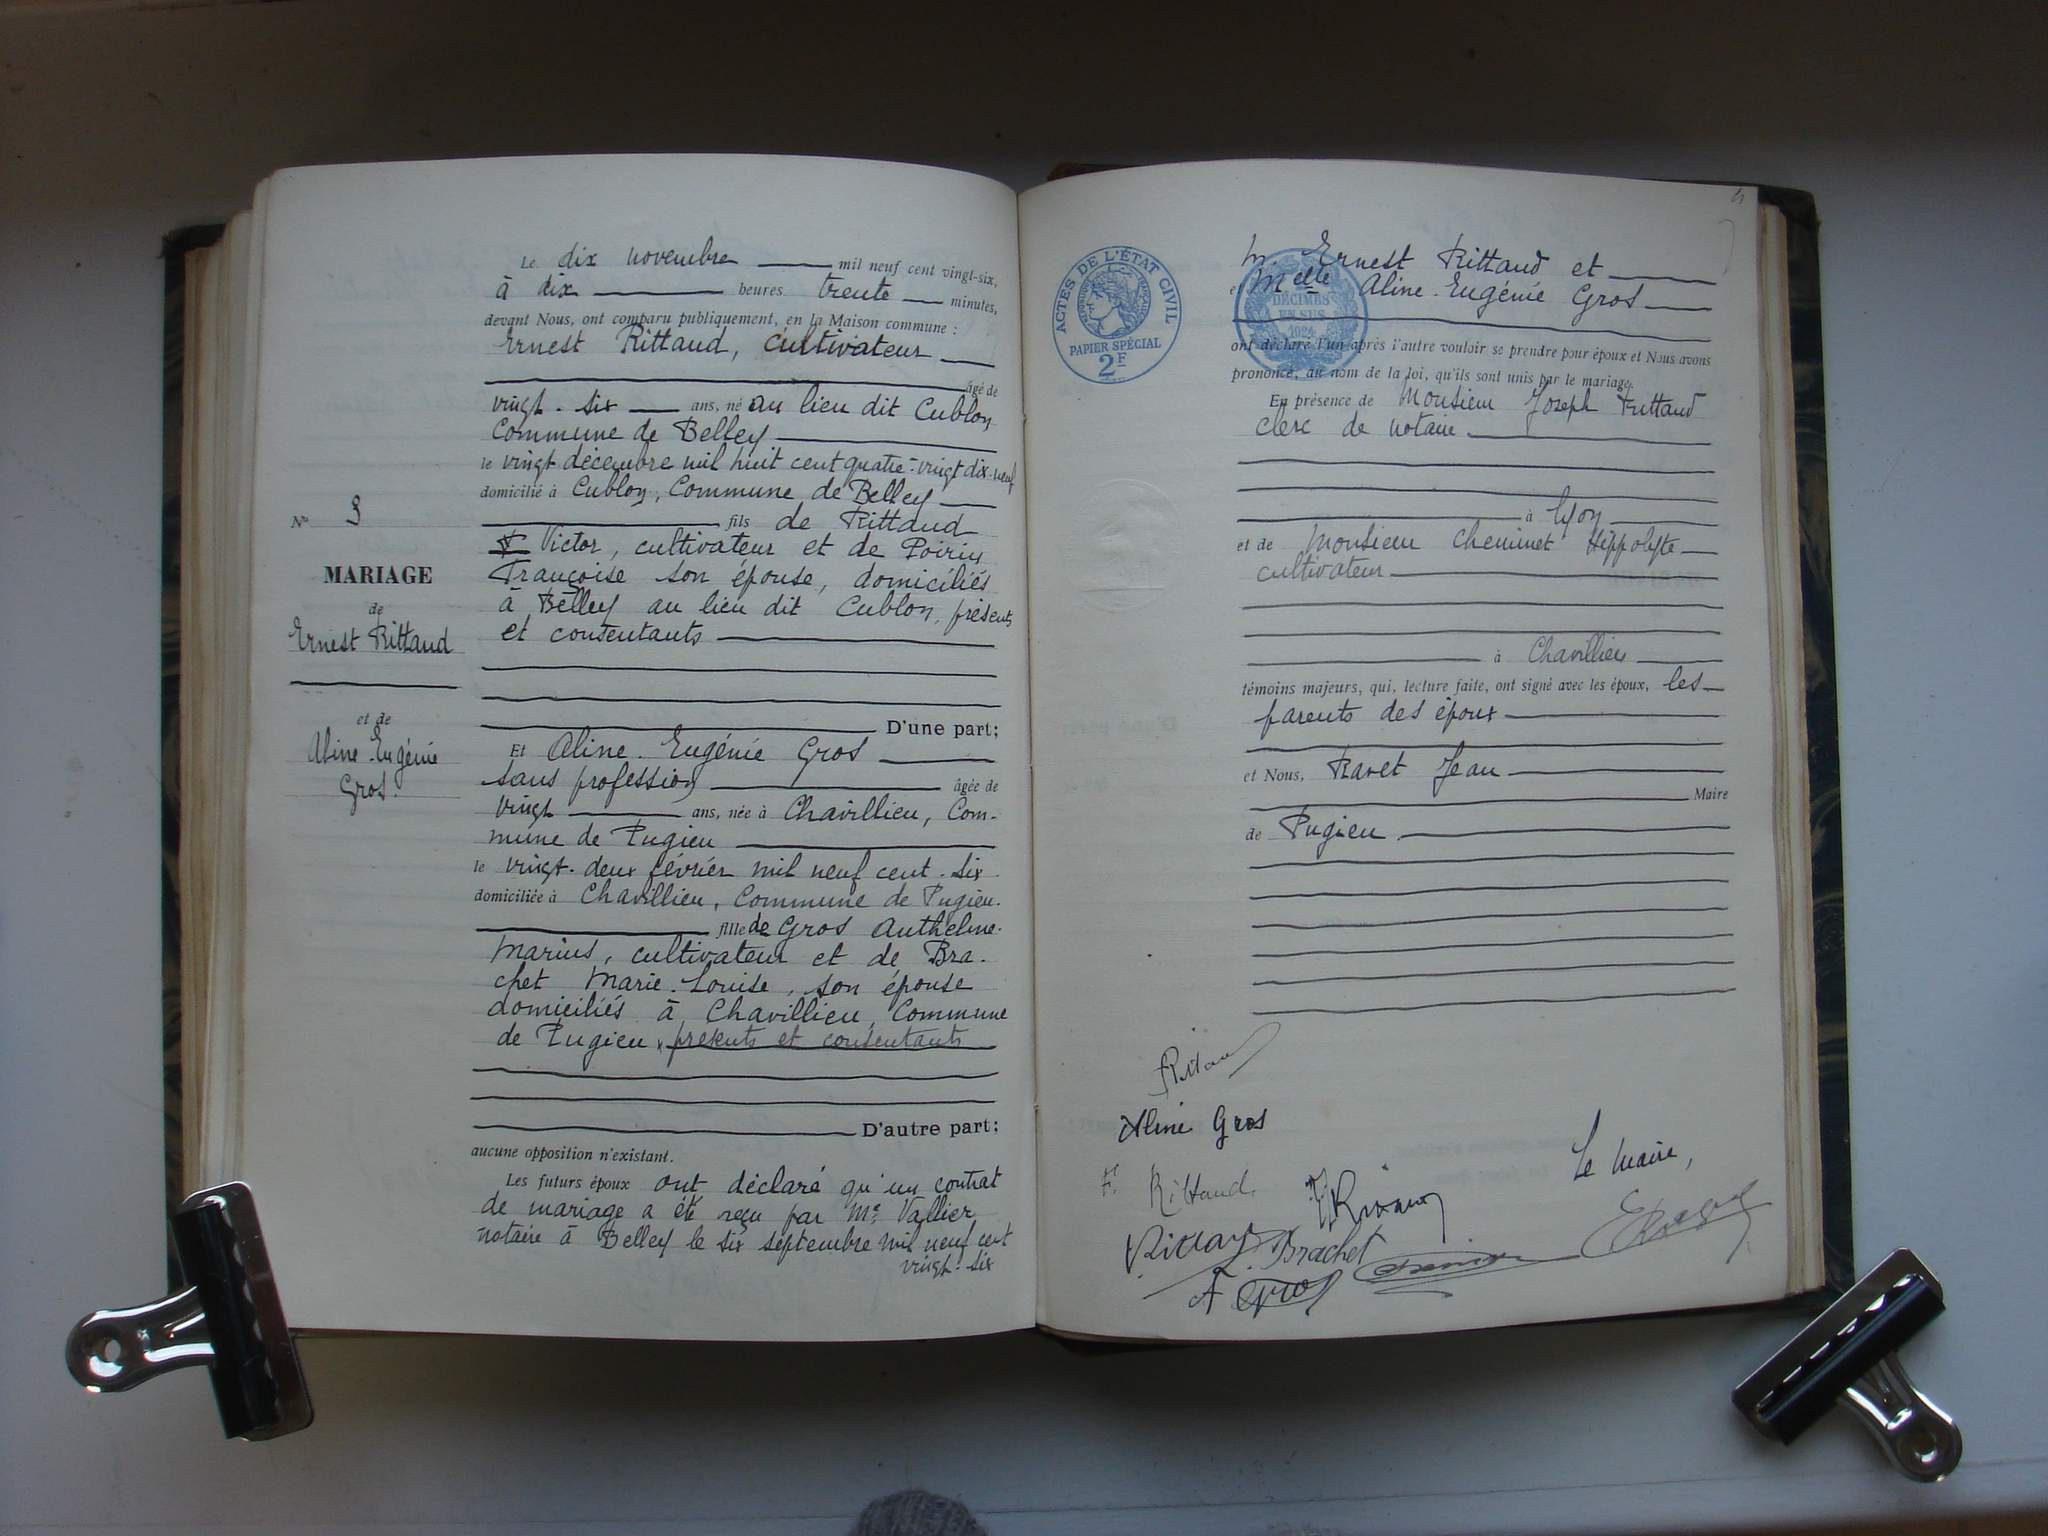 Le dix novembre mil neuf cent vingt-six,
à dix heures trente minutes,
devant Nous, ont comparu publiquement, en la Maison commune :
Ernest Rittaud, cultivateur
âgé de
vingt-six ans, né au lieu dit Cublon
Commune de Belley
le vingt décembre mil huit cent quatre-vingt dix-neuf
domicilié à Cublon, Commune de Belley
fils de Rittaud
Victor, cultivateur et de Poirin
Françoise son épouse, domiciliés
à Belley au lieu dit Cublon, présents
et consentants
D'une part;
Et Aline-Eugénie Gros
sans profession âgée de
vingt ans, née à Chavillieu, Com-
mune de Pugieu
le vingt-deux février mil neuf cent-six
domiciliée à Chavillieu, Commune de Pugieu.
fille de Gros Anthelme-
Marius, cultivateur et de Bra-
chet Marie-Louise, son épouse
domiciliés à Chavillieu, Commune
de Pugieu, présents et consentants
D'autre part;
aucune opposition n'existant.
Les futurs époux ont déclaré qu'un contrat
de mariage a été reçu par Me Vallier
notaire à Belley le six septembre mil neuf cent
vingt-six
No 3
MARIAGE
de
Ernest Rittaud
et de
Aline-Eugénie
Gros.
ACTES DE L'ÉTAT CIVIL
PAPIER SPÉCIAL
2F
DÉCIMES
EN SUS
1924
M. Ernest Rittaud et
Melle Aline-Eugénie Gros
ont déclaré l'un après l'autre vouloir se prendre pour époux et Nous avons
prononcé, au nom de la loi, qu'ils sont unis par le mariage.
En présence de Monsieur Joseph Rittaud
clerc de notaire
à Lyon
et de Monsieur Cheminet Hippolyte
cultivateur
à Chavillieu
témoins majeurs, qui, lecture faite, ont signé avec les époux, les
parents des époux
et Nous, Ravet Jean
Maire
de Pugieu
Aline Gros
F. Rittaud
Le Maire,
Brachet
A Gros